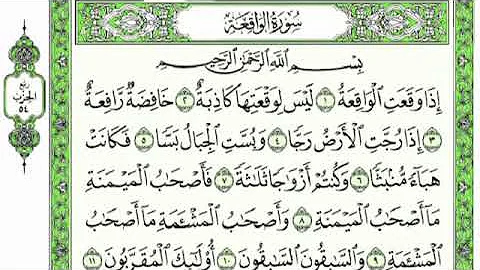 سُورَةُ الْوَاقِعَةِ
بِسْمِ اللَّهِ الرَّحْمَٰنِ الرَّحِيمِ
إِذَا وَقَعَتِ الْوَاقِعَةُ ١ لَيْسَ لِوَقْعَتِهَا كَاذِبَةٌ ٢ خَافِضَةٌ رَّافِعَةٌ
٣ إِذَا رُجَّتِ الْأَرْضُ رَجًّا ٤ وَبُسَّتِ الْجِبَالُ بَسًّا ٥ فَكَانَتْ
هَبَاءً مُّنبَثًّا ٦ وَكُنتُمْ أَزْوَاجًا ثَلَاثَةً ٧ فَأَصْحَابُ الْمَيْمَنَةِ
مَا أَصْحَابُ الْمَيْمَنَةِ ٨ وَأَصْحَابُ الْمَشْأَمَةِ مَا أَصْحَابُ
الْمَشْأَمَةِ ٩ وَالسَّابِقُونَ السَّابِقُونَ ١٠ أُولَٰئِكَ الْمُقَرَّبُونَ ١١
ربع
الحزب
٥٤